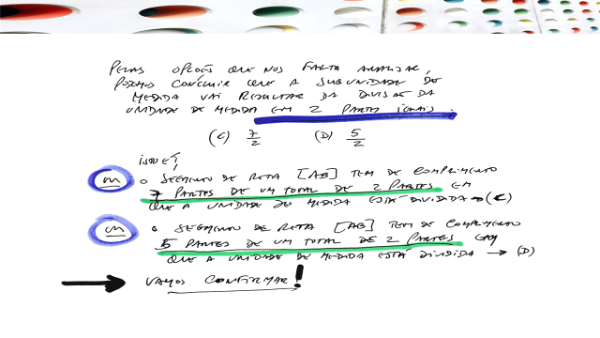 PELAS OPÇÕES QUE NOS FALTA ANALISAR,
PODEMOS CONCLUIR QUE A SUBUNIDADE DE
MEDIDA VAI RESULTAR DA DIVISÃO DA
UNIDADE DE MEDIDA EM 2 PARTES IGUAIS.
(C) 7/2 (D) 5/2
ISTO É,
OU O SEGMENTO DE RETA [AB] TEM DE COMPRIMENTO
7 PARTES DE UM TOTAL DE 2 PARTES EM
QUE A UNIDADE DE MEDIDA ESTÁ DIVIDIDA → (C)
OU O SEGMENTO DE RETA [AB] TEM DE COMPRIMENTO
5 PARTES DE UM TOTAL DE 2 PARTES EM
QUE A UNIDADE DE MEDIDA ESTÁ DIVIDIDA → (D)
→ VAMOS CONFIRMAR!